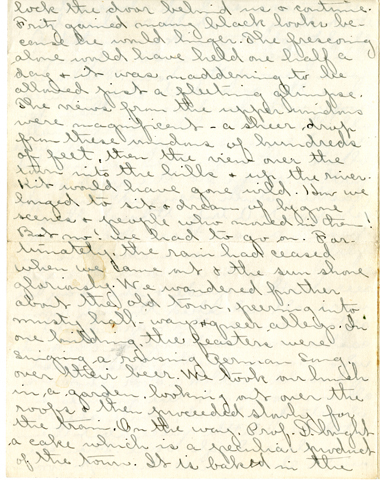 lock the door behind us & continue.
Fritz gained many black looks be-
cause he would linger. The frescoing
alone would have held one half a
day & it was maddening to be
allowed just a fleeting glimpse.
The views from the upper windows
were magnificent - a sheer drop
from these windows of hundreds
of feet, then the view over the
town into the hills & up the river.
would have gone wild. How we
longed to sit & dream of bygone
scenes & people who moved in them!
But no! we had to go on. For-
tunately the rain had ceased
when we came out & the sun shone
gloriously. We wandered further
about the old town, peering into
hall-ways & queer alleys. In
one building the were
singing a rousing German song
over their beer. We took our lunch
in a garden looking out over the
roofs & then proceeded slowly for
the train. On the way, Prof. D. bought
a cake which is a peculiar product
of the town. It is baked in the